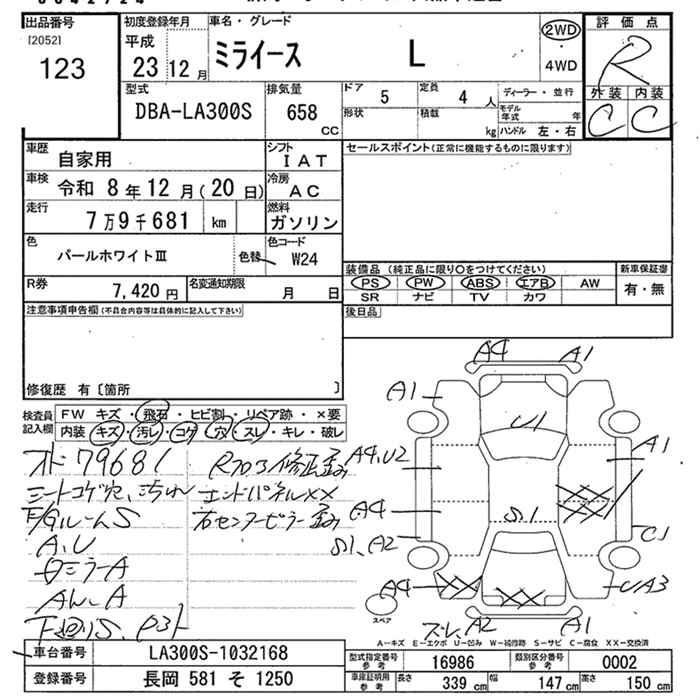 出品番号
[2052]
123
初度登録年月
平成
23 12 月
車名・グレード
ミライース L
2WD
・
4WD
評価点
R
外装 内装
C C
型式
DBA-LA300S
排気量
658
CC
ドア 5
定員 4 人
形状
積載
kg
ディーラー・並行
モデル
年式
年
ハンドル 左・右
車歴
自家用
シフト
IAT
セールスポイント(正常に機能するものに限ります)
車検
令和 8 年 12 月(20 日)
冷房
AC
走行
7 万 9 千 681 km
燃料
ガソリン
色
パールホワイトⅢ
色替
色コード
W24
装備品(純正品に限り○をつけてください)
新車保証書
PS PW ABS エアB AW
有・無
SR ナビ TV カワ
R券
7,420 円
名変通知期限
月 日
後日品
注意事項申告欄(不具合内容等は具体的に記入して下さい)
修復歴 有〔箇所 〕
検査員
記入欄
FW キズ・飛石・ヒビ割・リペア跡・×要
内装・キズ・汚レ・コゲ・穴・スレ・キレ・破レ
オド 79681
シートコゲ穴、汚れ
F/Gルーム S
A、U
ミラーA
A
下廻りS、
Rフロア修正歪み
エンドパネルXX
右センターピラー歪み
A4 A1
A1
U1
A4,U2
A1
A4
S1
S1、A2
C1
A4
UA3
スペア
A2 A1
A－キズ E－エクボ U－凹み W－補修跡 S－サビ C－腐食 XX－交換済
車台番号
LA300S-1032168
登録番号
長岡 581 そ 1250
型式指定番号
参考
16986
類別区分番号
参考
0002
車庫証明用
参考
長さ 339 cm
幅 147 cm
高さ 150 cm